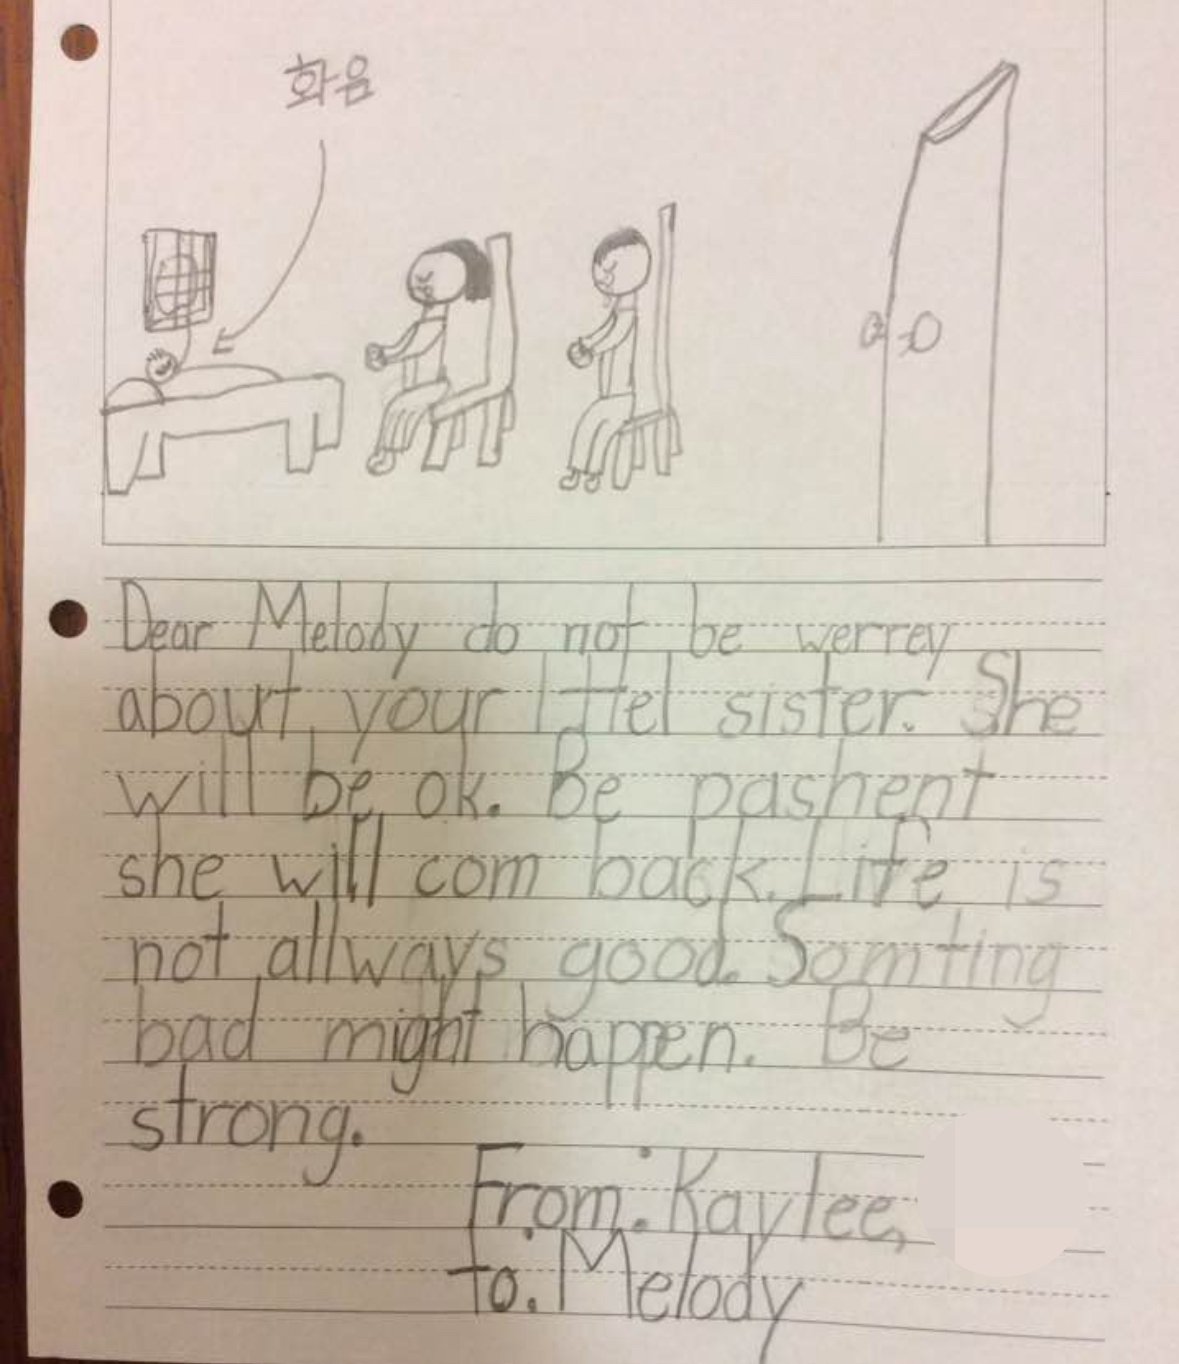 화음
Dear Melody do not be werrey
about your littel sister. She
will be ok. Be pashent
she will com back. Life is
not allways good. Somting
bad might happen. Be
strong.
From: Kaylee,
to: Melody